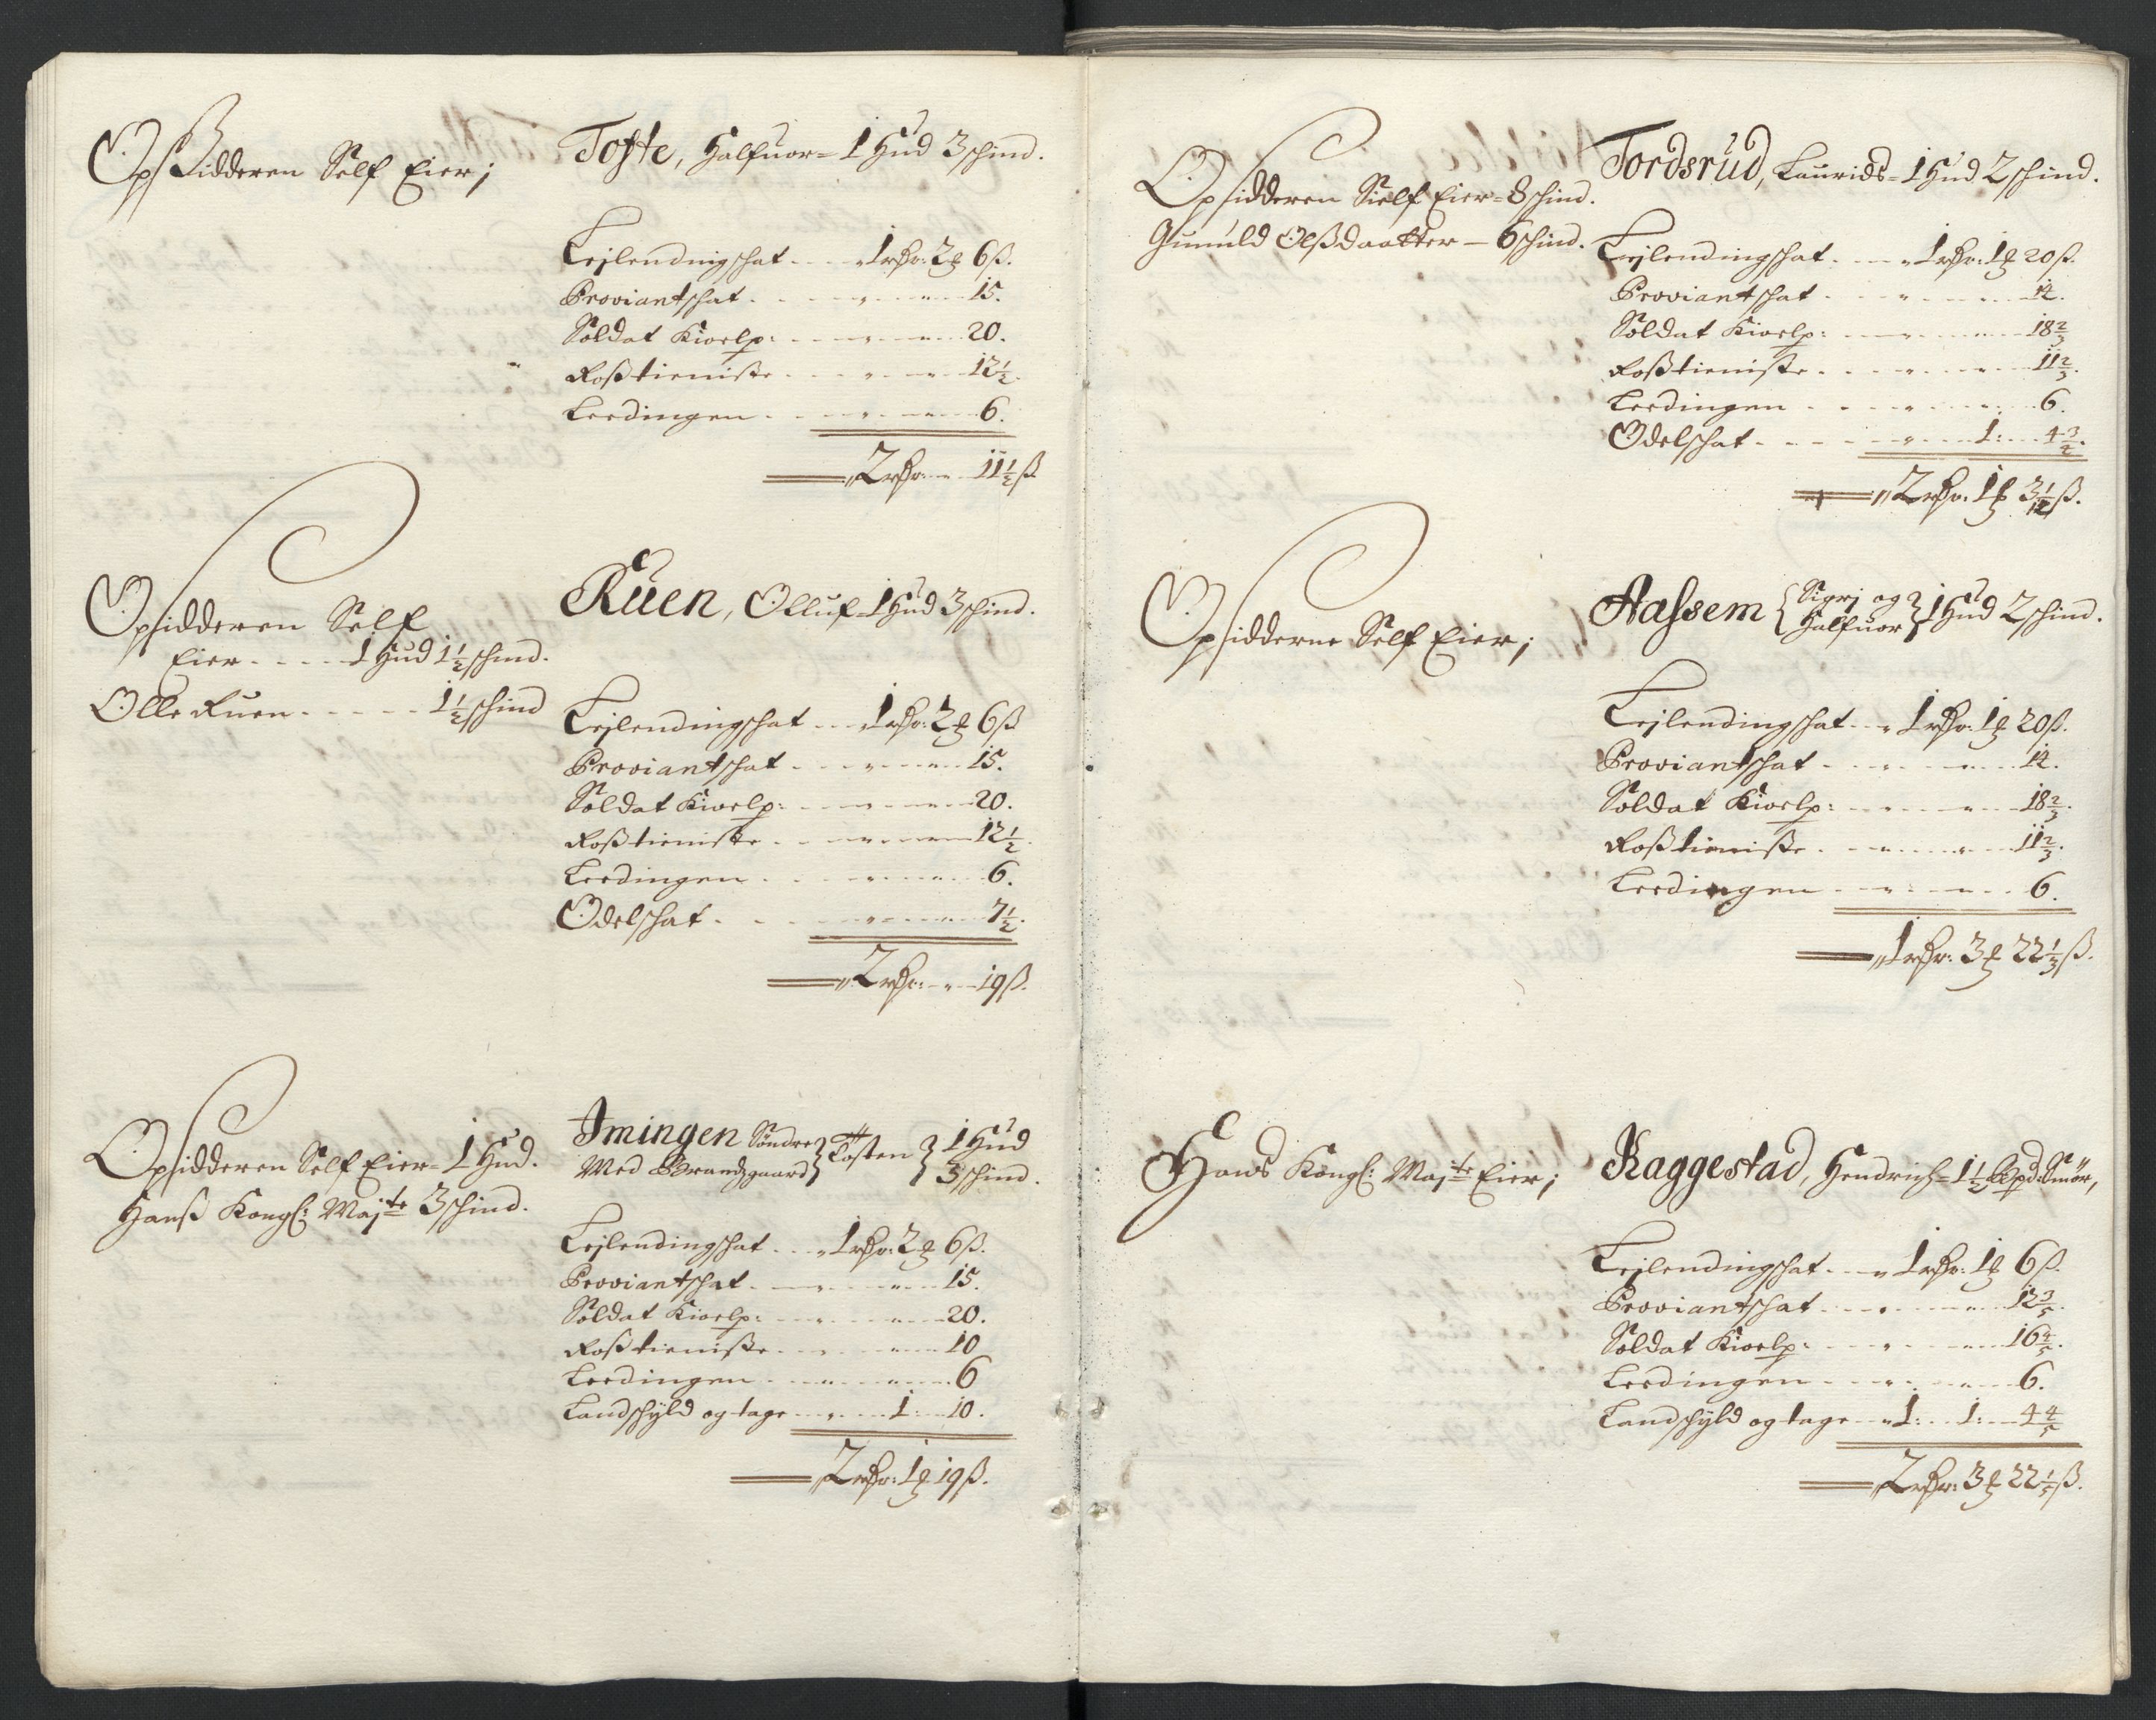 Opsidderen Self Eier;
Tofte, Halfuor = 1 Hud 3 schind.
Leilendingschat . . . 1 rdr: 2 ₰ 6 ß.
Proviantschat . . . 15.
Soldat Kioelp: . . . 20.
Roßtieniste . . . 12 1/2.
Leedingen . . . 6.
2 rdr: - 11 1/2 ß
Opsidderen Self
Eier . . . . 1 Hud 1 1/2 schind.
Olle Ruen . . . . . 1 1/2 schind
Ruen, Olluf 1 Hud 3 schind.
Leilendingschat . . . 1 rdr: 2 ₰ 6 ß
Proviantschat . . . 15.
Soldat Kioelp: . . . 20.
Roßtieniste . . . 12 1/2.
Leedingen . . . 6.
Odelschat . . . 7 1/2.
2 rdr: - 19 ß.
Opsidderen Self Eier = 1 Hud.
Hanß Kongl: Majte 3 schind.
Imingen Søndre
Med Brandzgaard } Tosten } 1 Hud
3 schind.
Leilendingschat . . . 1 rdr: 2 ₰ 6 ß.
Proviantschat . . . 15.
Soldat Kioelp: . . . 20.
Roßtieniste . . . 10
Leedingen . . . 6
Landschyld og tage . . . 1: 10.
2 rdr: 1 ₰ 19 ß.
Opsidderen Sielf Eier = 8 schind.
Gunuld Olßdaatter — 6 schind.
Tordsrud, Laurids = 1 Hud 2 schind.
Leilendingschat . . . 1 rdr: 1 ₰ 20 ß.
Proviantschat . . . 14.
Soldat Kioelp: . . . 18 2/3
Roßtieniste . . . 11 2/3.
Leedingen . . . 6.
Odelschat . . . 1: 4 3/4.
2 rdr: 1 ₰ 3 1/12 ß.
Opsidderne Self Eier;
Aassem { Sigrj og
Halfuor } 1 Hud 2 schind.
Leilendingschat . . . 1 rdr: 1 ₰ 20 ß.
Proviantschat . . . 14.
Soldat Kioelp: . . . 18 2/3.
Roßtieniste . . . 11 2/3.
Leedingen . . . 6.
1 rdr: 3 ₰ 22 1/3 ß.
Hans Kongl: Majte Eier;
Raggestad, Hendrich = 1 1/2 Lispd: Smør,
Leilendingschat . . . 1 rdr: 1 ₰ 6 ß.
Proviantschat . . . 12 3/5.
Soldat Kioelp: . . . 16 4/5.
Leedingen . . . 6.
Landschyld og tage . . 1: 1: 4 4/5
2 rdr: 3 ₰ 22 1/5 ß.